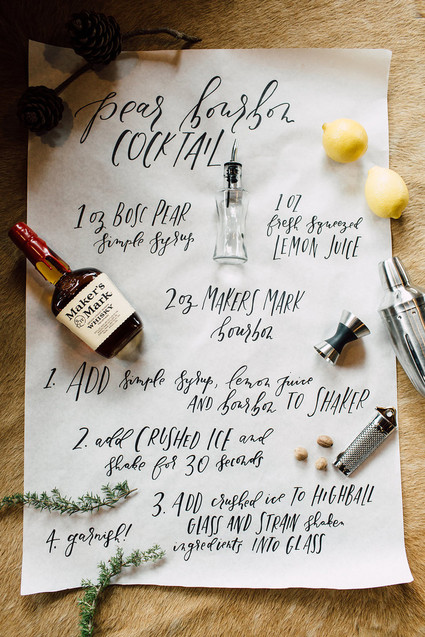 pear bourbon
COCKTAIL
1 oz BOSC PEAR
simple syrup
1 oz
fresh squeezed
LEMON JUICE
2 oz MAKERS MARK
bourbon
Maker's
Mark
WHISKY
1. ADD simple syrup, lemon juice
AND bourbon TO SHAKER
2. add CRUSHED ICE and
shake for 30 seconds
3. ADD crushed ice to HIGHBALL
GLASS AND STRAIN shaken
ingredients INTO GLASS
4. garnish!